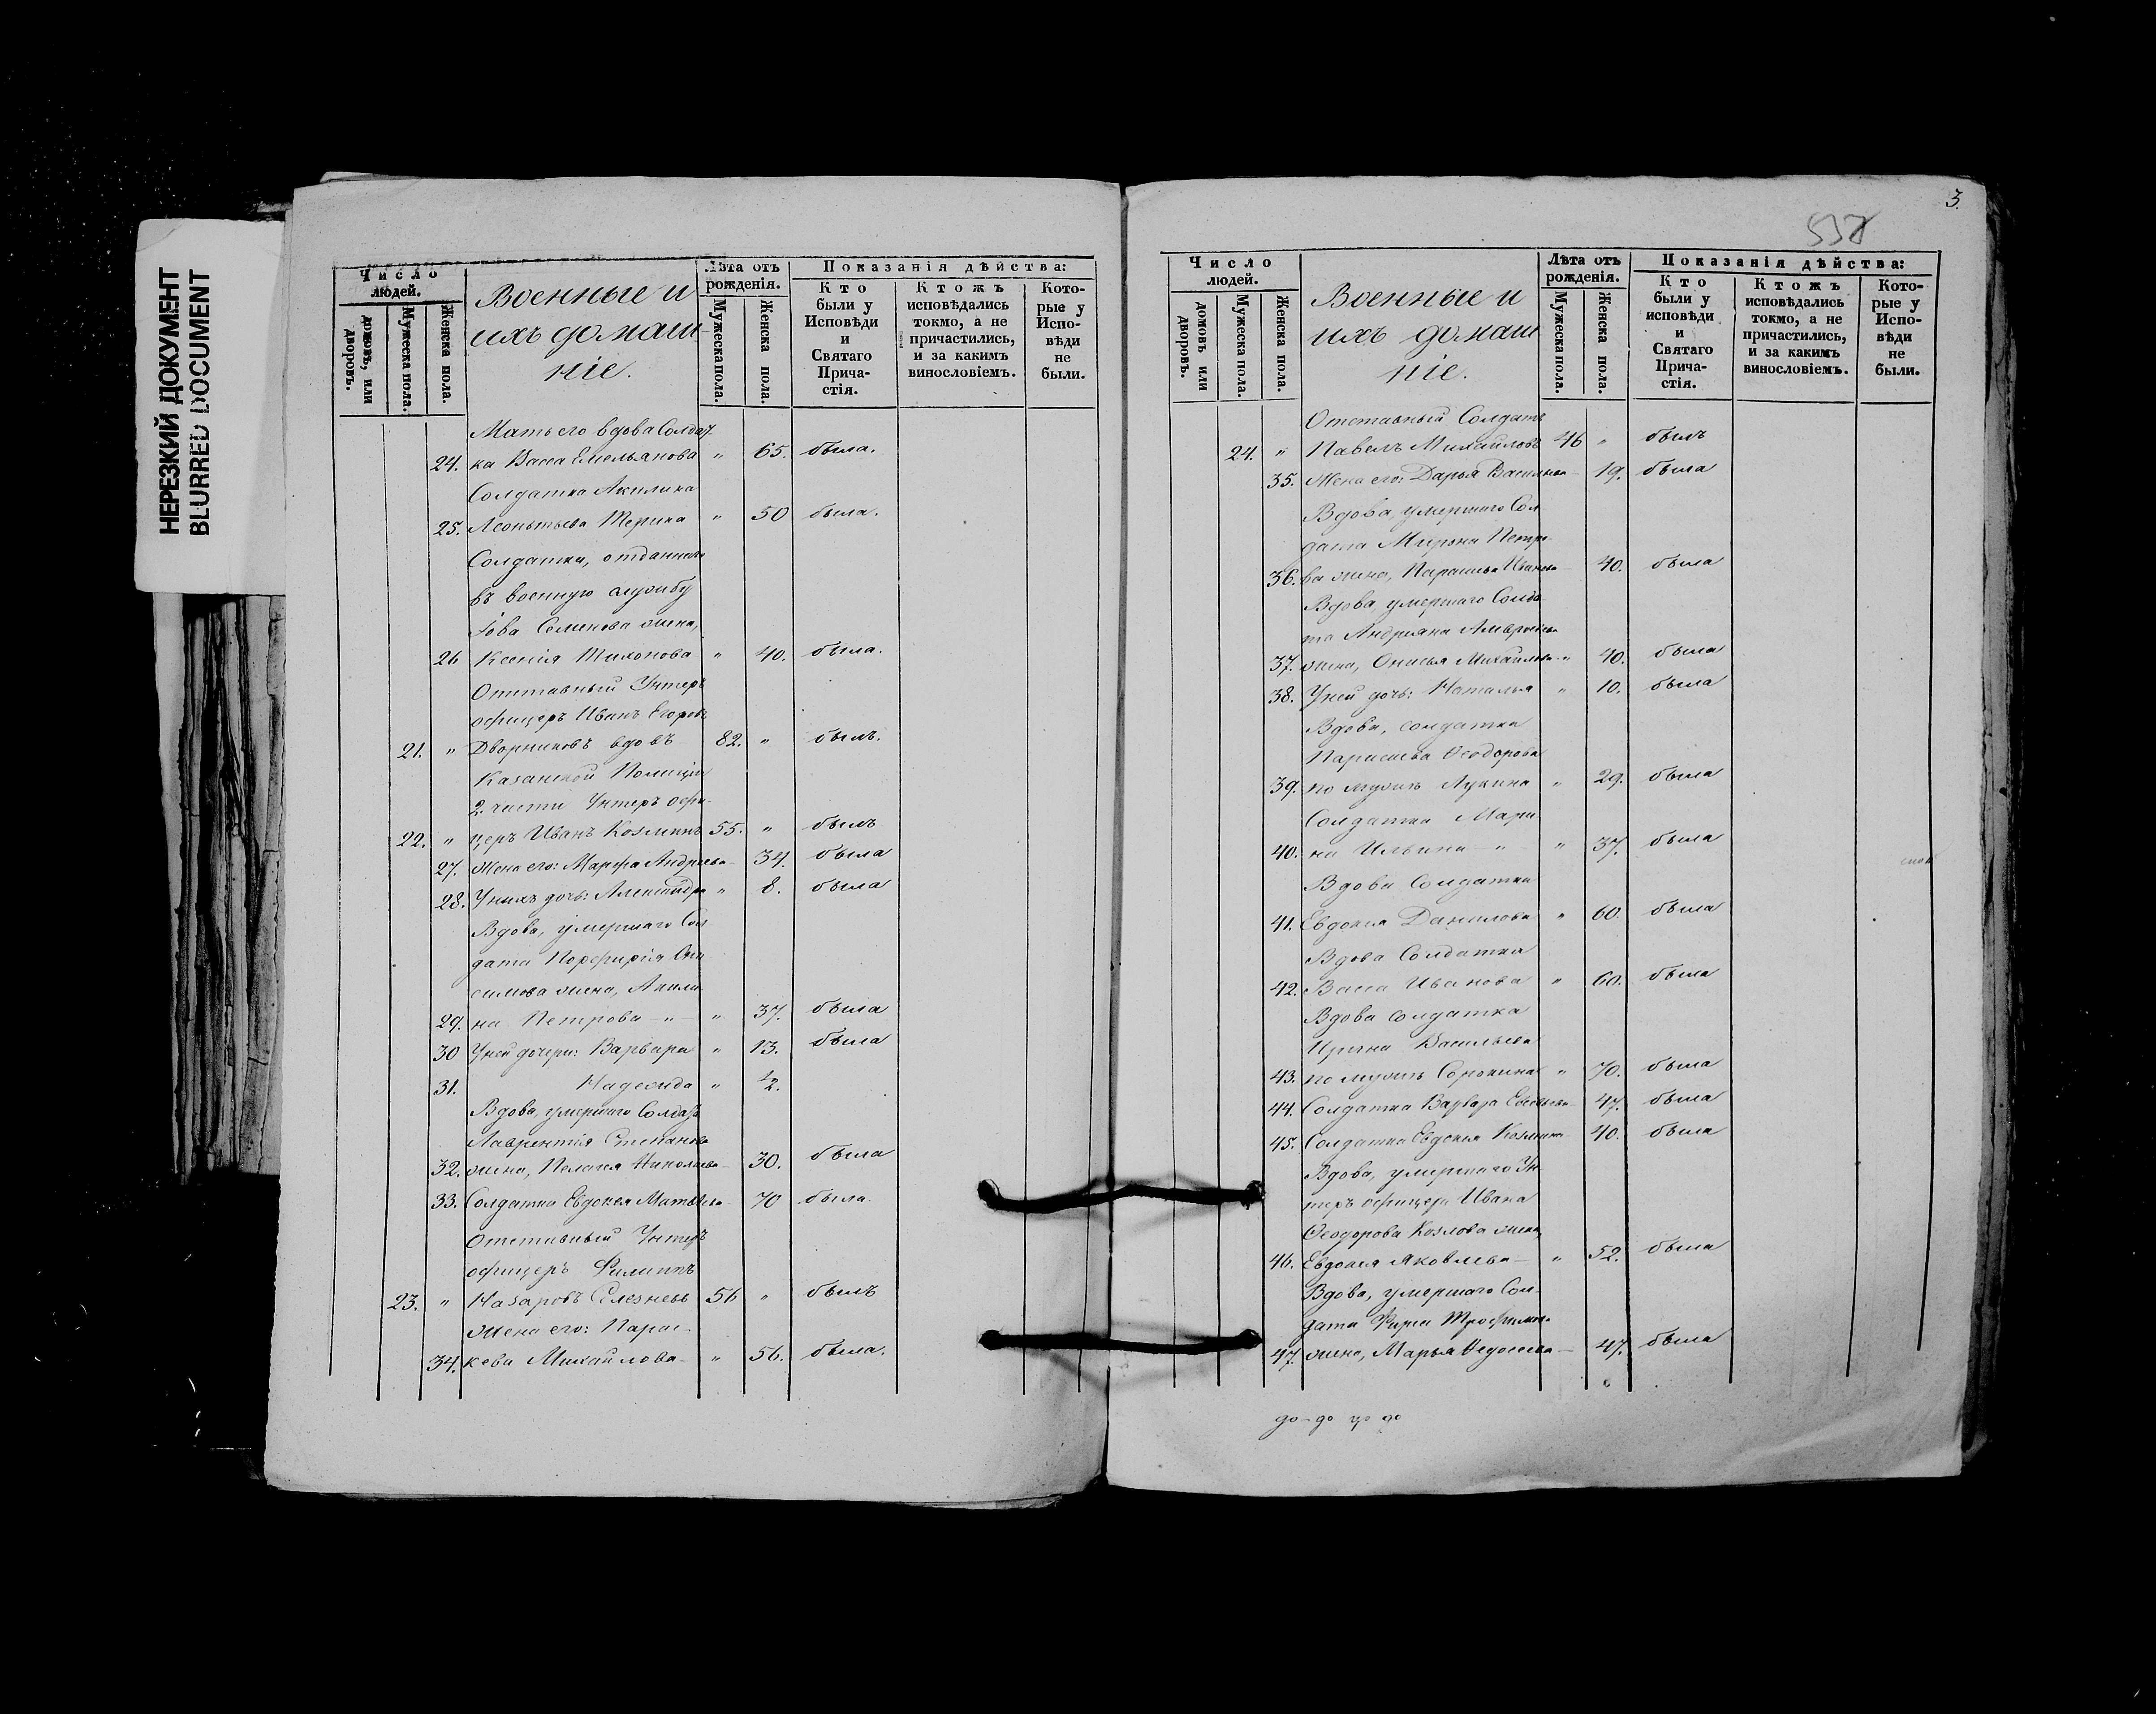 НЕРЕЗКИЙ ДОКУМЕНТ
BLURRED DOCUMENT
Число людей.
домовъ, или дворовъ.
Мужеска пола.
Женска пола.
Военные и
ихъ домаш-
ніе.
Лѣта отъ рожденія.
Мужеска пола.
Женска пола.
Показанія дѣйства:
Кто были у Исповѣди и Святаго Прича-стія.
Ктожъ исповѣдались токмо, а не причастились, и за какимъ винословіемъ.
Кото-рые у Испо-вѣди не были.
Мать его вдова Солдат-
24. ка Васса Емельянова " 65. была.
Солдатка Акилина
25. Леонтьева Терина " 50 была.
Солдатка, отданнаго
въ военную службу
Іова Семенова жена,
26 Ксенія Тихонова " 40. была.
Отставный Унтеръ
офицеръ Иванъ Егоровъ
21. " Дворниковъ вдовъ 82. " былъ.
Казанской Полиціи
2. части Унтеръ офи-
22. " церъ Иванъ Козминъ 55. " былъ
27. Жена его: Марфа Андреева - 34. была
28. У нихъ дочь: Александра " 8. была
Вдова, умершаго Сол
дата Порфирія Они
симова жена, Акили
29. на Петрова - " - " 37. была
30 У ней дочери: Варвара " 13. была
31. Надежда " ½.
Вдова, умершаго Солдата
Лаврентія Степанова
32. жена, Пелагея Николаева - 30. была
33. Солдатка Евдокея Матвѣева - 70 была.
Отставный Унтеръ
офицеръ Филиппъ
23. " Назаровъ Селезневъ 56 " былъ
Жена его: Парас-
34. кева Михайлова - " 56. была.
3.
538
Число людей.
домовъ или дворовъ.
Мужеска пола.
Женска пола.
Военные и
ихъ домаш
ніе.
Лѣта отъ рожденія.
Мужеска пола.
Женска пола.
Показанія дѣйства:
Кто были у исповѣди и Святаго Прича-стія.
Ктожъ исповѣдались токмо, а не причастились, и за какимъ винословіемъ.
Кото-рые у Испо-вѣди не были.
Отставный Солдатъ
24. " Павелъ Михайловъ 46 " былъ
35. Жена его: Дарья Васильева - 19. была
Вдова, умершаго Сол
дата Мирона Петро-
36. ва жена, Парасева Иванова - 40. была
Вдова, умершаго Солда
та Андреяна Амвросіева
37. жена, Онисья Михайлова - " 40. была
38. У ней дочь: Наталья " 10. была
Вдова, солдатка
Парасева Ѳеодорова
39. по мужѣ Лукина " 29. была
Солдатка Мари
40. на Ильина - " - " 37. была
Вдова Солдатка
41. Евдокея Данилова " 60. была
Вдова Солдатка
42. Васса Иванова " 60. была
Вдова солдатка
Ирина Васильева
43. по мужѣ Сорокина " 70. была
44. Солдатка Варвара - 47. была
45. Солдатка Евдокея Козмина - 40. была
Вдова, умершаго Ун
теръ офицера Ивана
Ѳеодорова Козлова жена,
46. Евдокея Яковлева - " 52. была
Вдова, умершаго Сол-
дата Фирса Трофимова
47. жена, Марья Ѳедосеева - 47. была